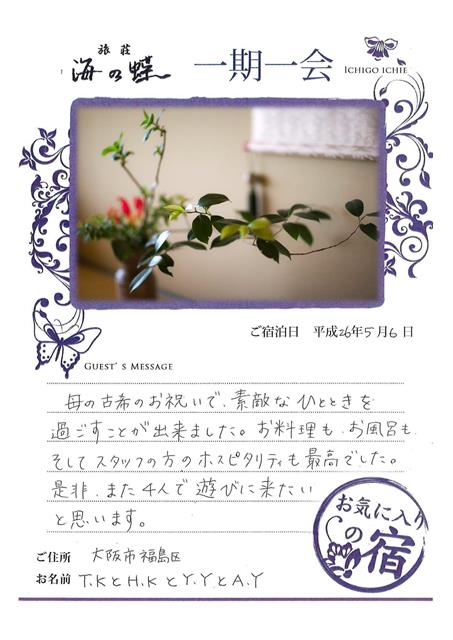 旅荘
海の蝶
一期一会
ICHIGO ICHIE
ご宿泊日 平成26年5月6日
GUEST'S MESSAGE
母の古希のお祝いで、素敵なひとときを
過ごすことが出来ました。お料理も、お風呂も、
そしてスタッフの方のホスピタリティも最高でした。
是非、また4人で遊びに来たい
と思います。
お気に入り
の宿
ご住所 大阪市福島区
お名前 T.KとH.KとY.YとA.Y